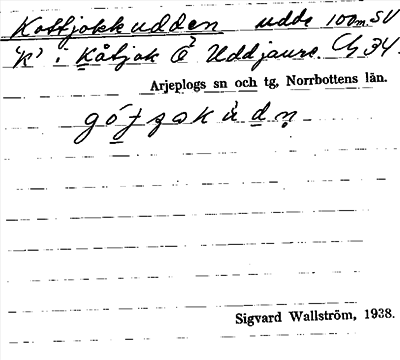 Kottjokkudden udde 100m. SV
"K". Kåtjok Ö Uddjaure. Ch 34.
Arjeplogs sn och tg, Norrbottens län.
Sigvard Wallström, 1938.